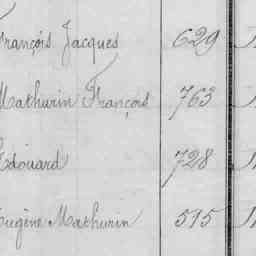 François Jacques 629
Mathurin François 763
Edouard 728
Eugène Mathurin 515